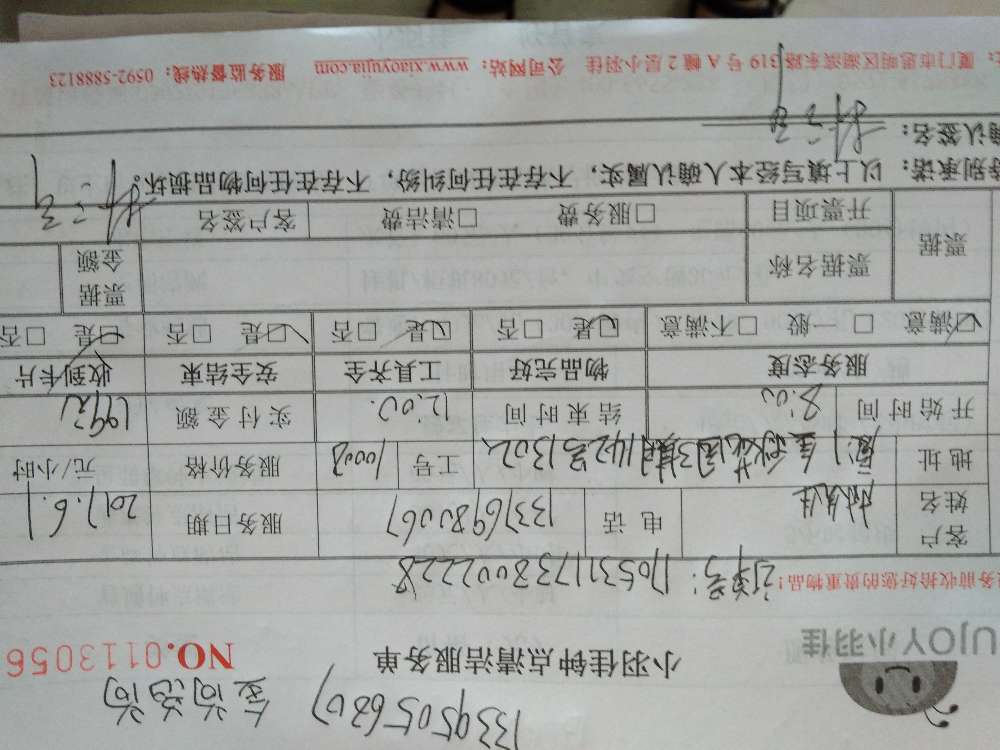 13395056807
UJOY小羽佳
小羽佳钟点清洁服务单
NO.0113056
务前收拾好您的贵重物品!
订单号: 17053117380022228
客户姓名
电话 13376980067
服务日期 2017.6.1
地址
142号1302
工号 10008
服务价格 元/小时
开始时间 8:00
结束时间 12:00
实付金额 199元
服务态度 物品完好 工具齐全 安全结束 收到卡片
☑满意 □一般 □不满意 ☑是 □否 ☑是 □否 ☑是 □否 ☑是 □否
票据 票据名称 票据金额
开票项目 □服务费 □清洁费 客户签名
特别承诺: 以上填写经本人确认属实,不存在任何纠纷,不存在任何物品损坏。
确认签名:
: 厦门市思明区湖滨东路319号A幢2层小羽佳 公司网站: www.xiaoyujia.com 服务监督热线: 0592-5888123